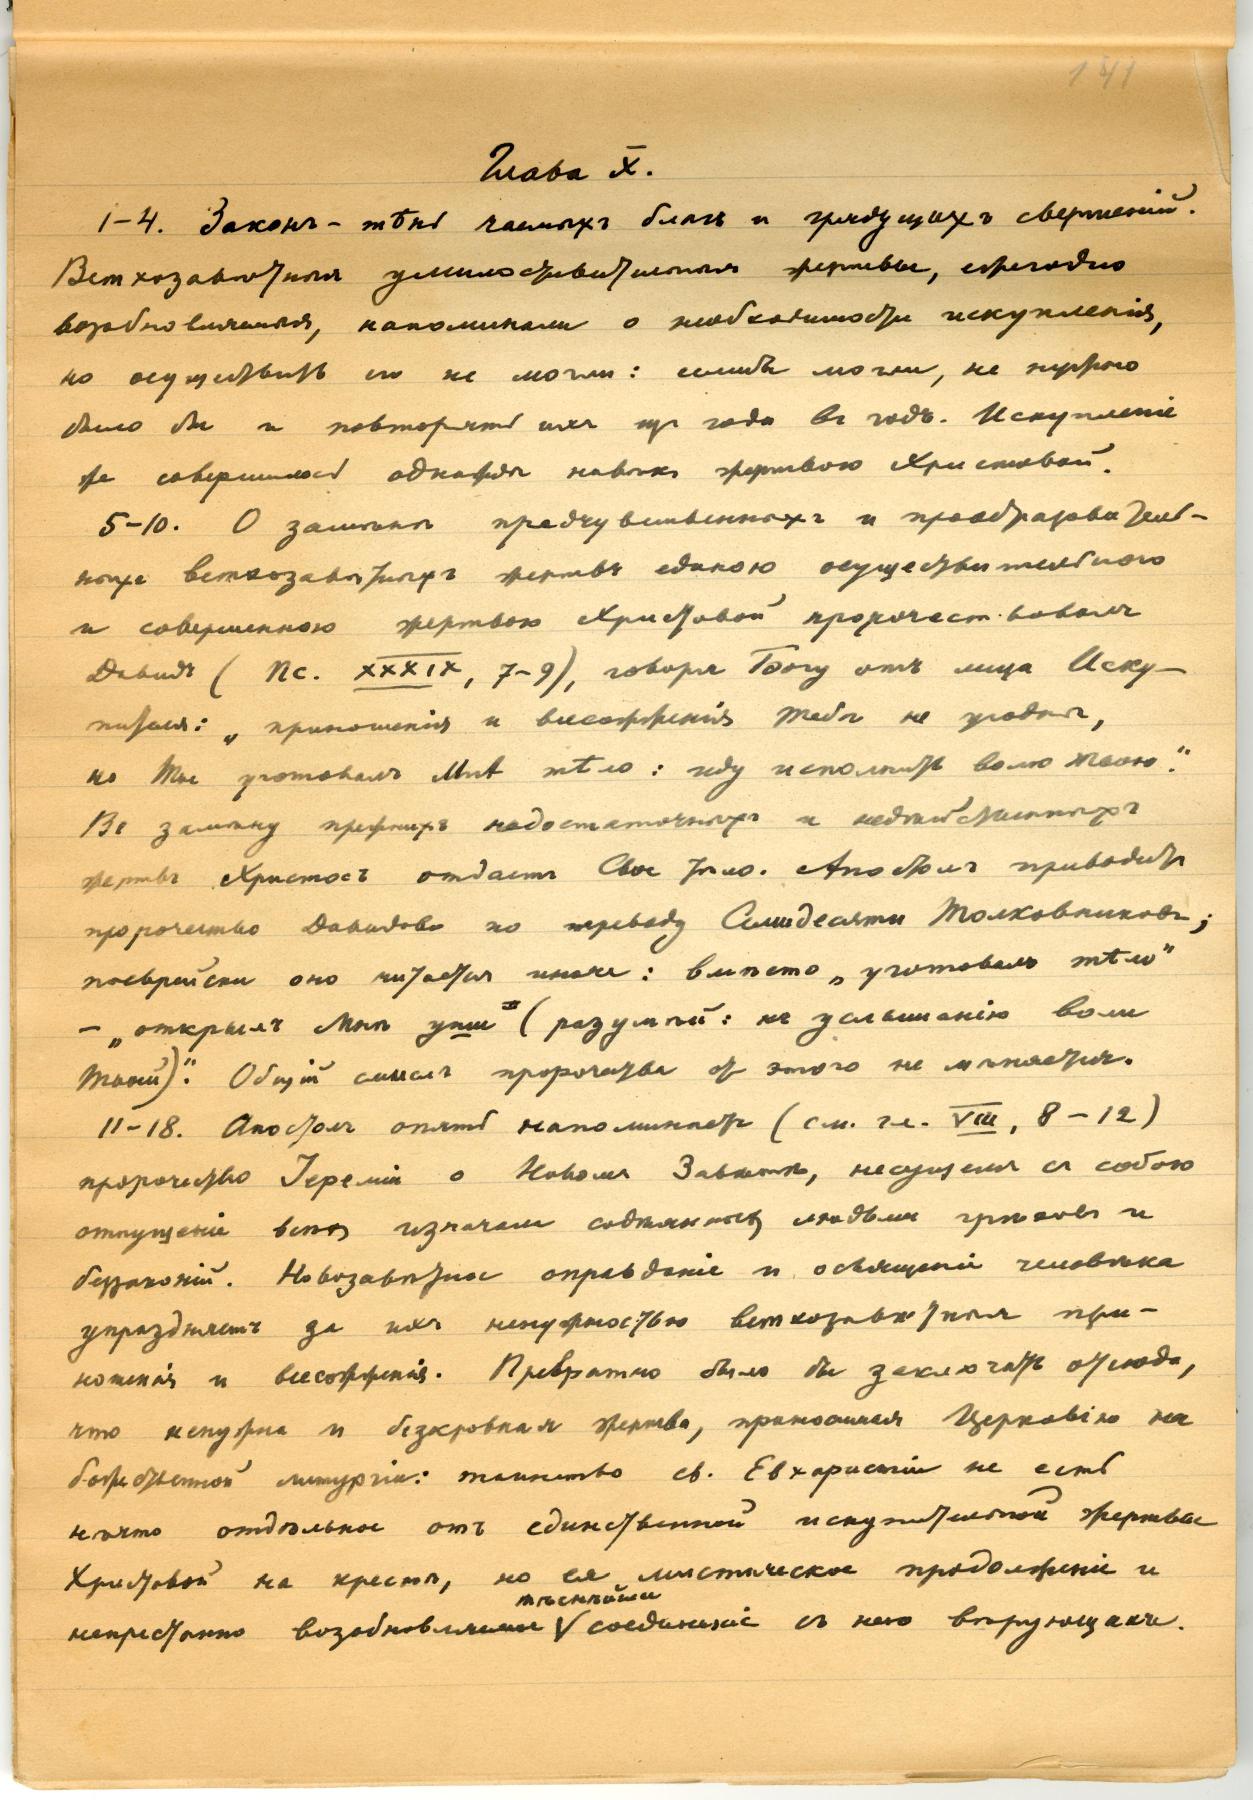 141
Глава X.
1–4. Законъ – тѣнь чаемыхъ благъ и грядущихъ свершеній.
Ветхозавѣтныя умилостивительныя жертвы, ежегодно
возобновляемыя, напоминали о необходимости искупленія,
но осуществить его не могли: еслибы могли, не нужно
было бы и повторять ихъ изъ года въ годъ. Искупленіе
же совершилось однажды навѣки жертвою Христовой.
5–10. О замѣнѣ предчувственныхъ и прообразователь-
ныхъ ветхозавѣтныхъ жертвъ единою осуществительною
и совершенною жертвою Христовой пророчествовалъ
Давидъ (Пс. XXXIX, 7–9), говоря Богу отъ лица Иску-
пителя: „приношенія и всесожженія Тебѣ не угодны,
но Ты уготовалъ Мнѣ тѣло: иду исполнить волю Твою“.
Въ замѣну прежнихъ недостаточныхъ и недѣйственныхъ
жертвъ Христосъ отдастъ Свое тѣло. Апостолъ приводитъ
пророчество Давидово по переводу Семидесяти Толковниковъ;
поеврейски оно читается иначе: вмѣсто „уготовалъ тѣло“
– „открылъ Мнѣ уши“ (разумѣй: къ услышанію воли
Твоей)“. Общій смыслъ пророчества отъ этого не мѣняется.
11–18. Апостолъ опять напоминаетъ (см. гл. VIII, 8–12)
пророчество Іереміи о Новомъ Завѣтѣ, несущемъ съ собою
отпущеніе всѣхъ изначала содѣянныхъ людьми грѣховъ и
беззаконій. Новозавѣтное оправданіе и освященіе человѣка
упраздняетъ за ихъ ненужностью ветхозавѣтныя при-
ношенія и всесожженія. Превратно было бы заключать отсюда,
что ненужна и безкровная жертва, приносимая Церковію на
божественной литургіи: таинство св. Евхаристіи не есть
нѣчто отдѣльное отъ единственной искупительной жертвы
Христовой на крестѣ, но ея мистическое продолженіе и
тѣснѣйшее
непрестанно возобновляемое V соединеніе съ нею вѣрующихъ.